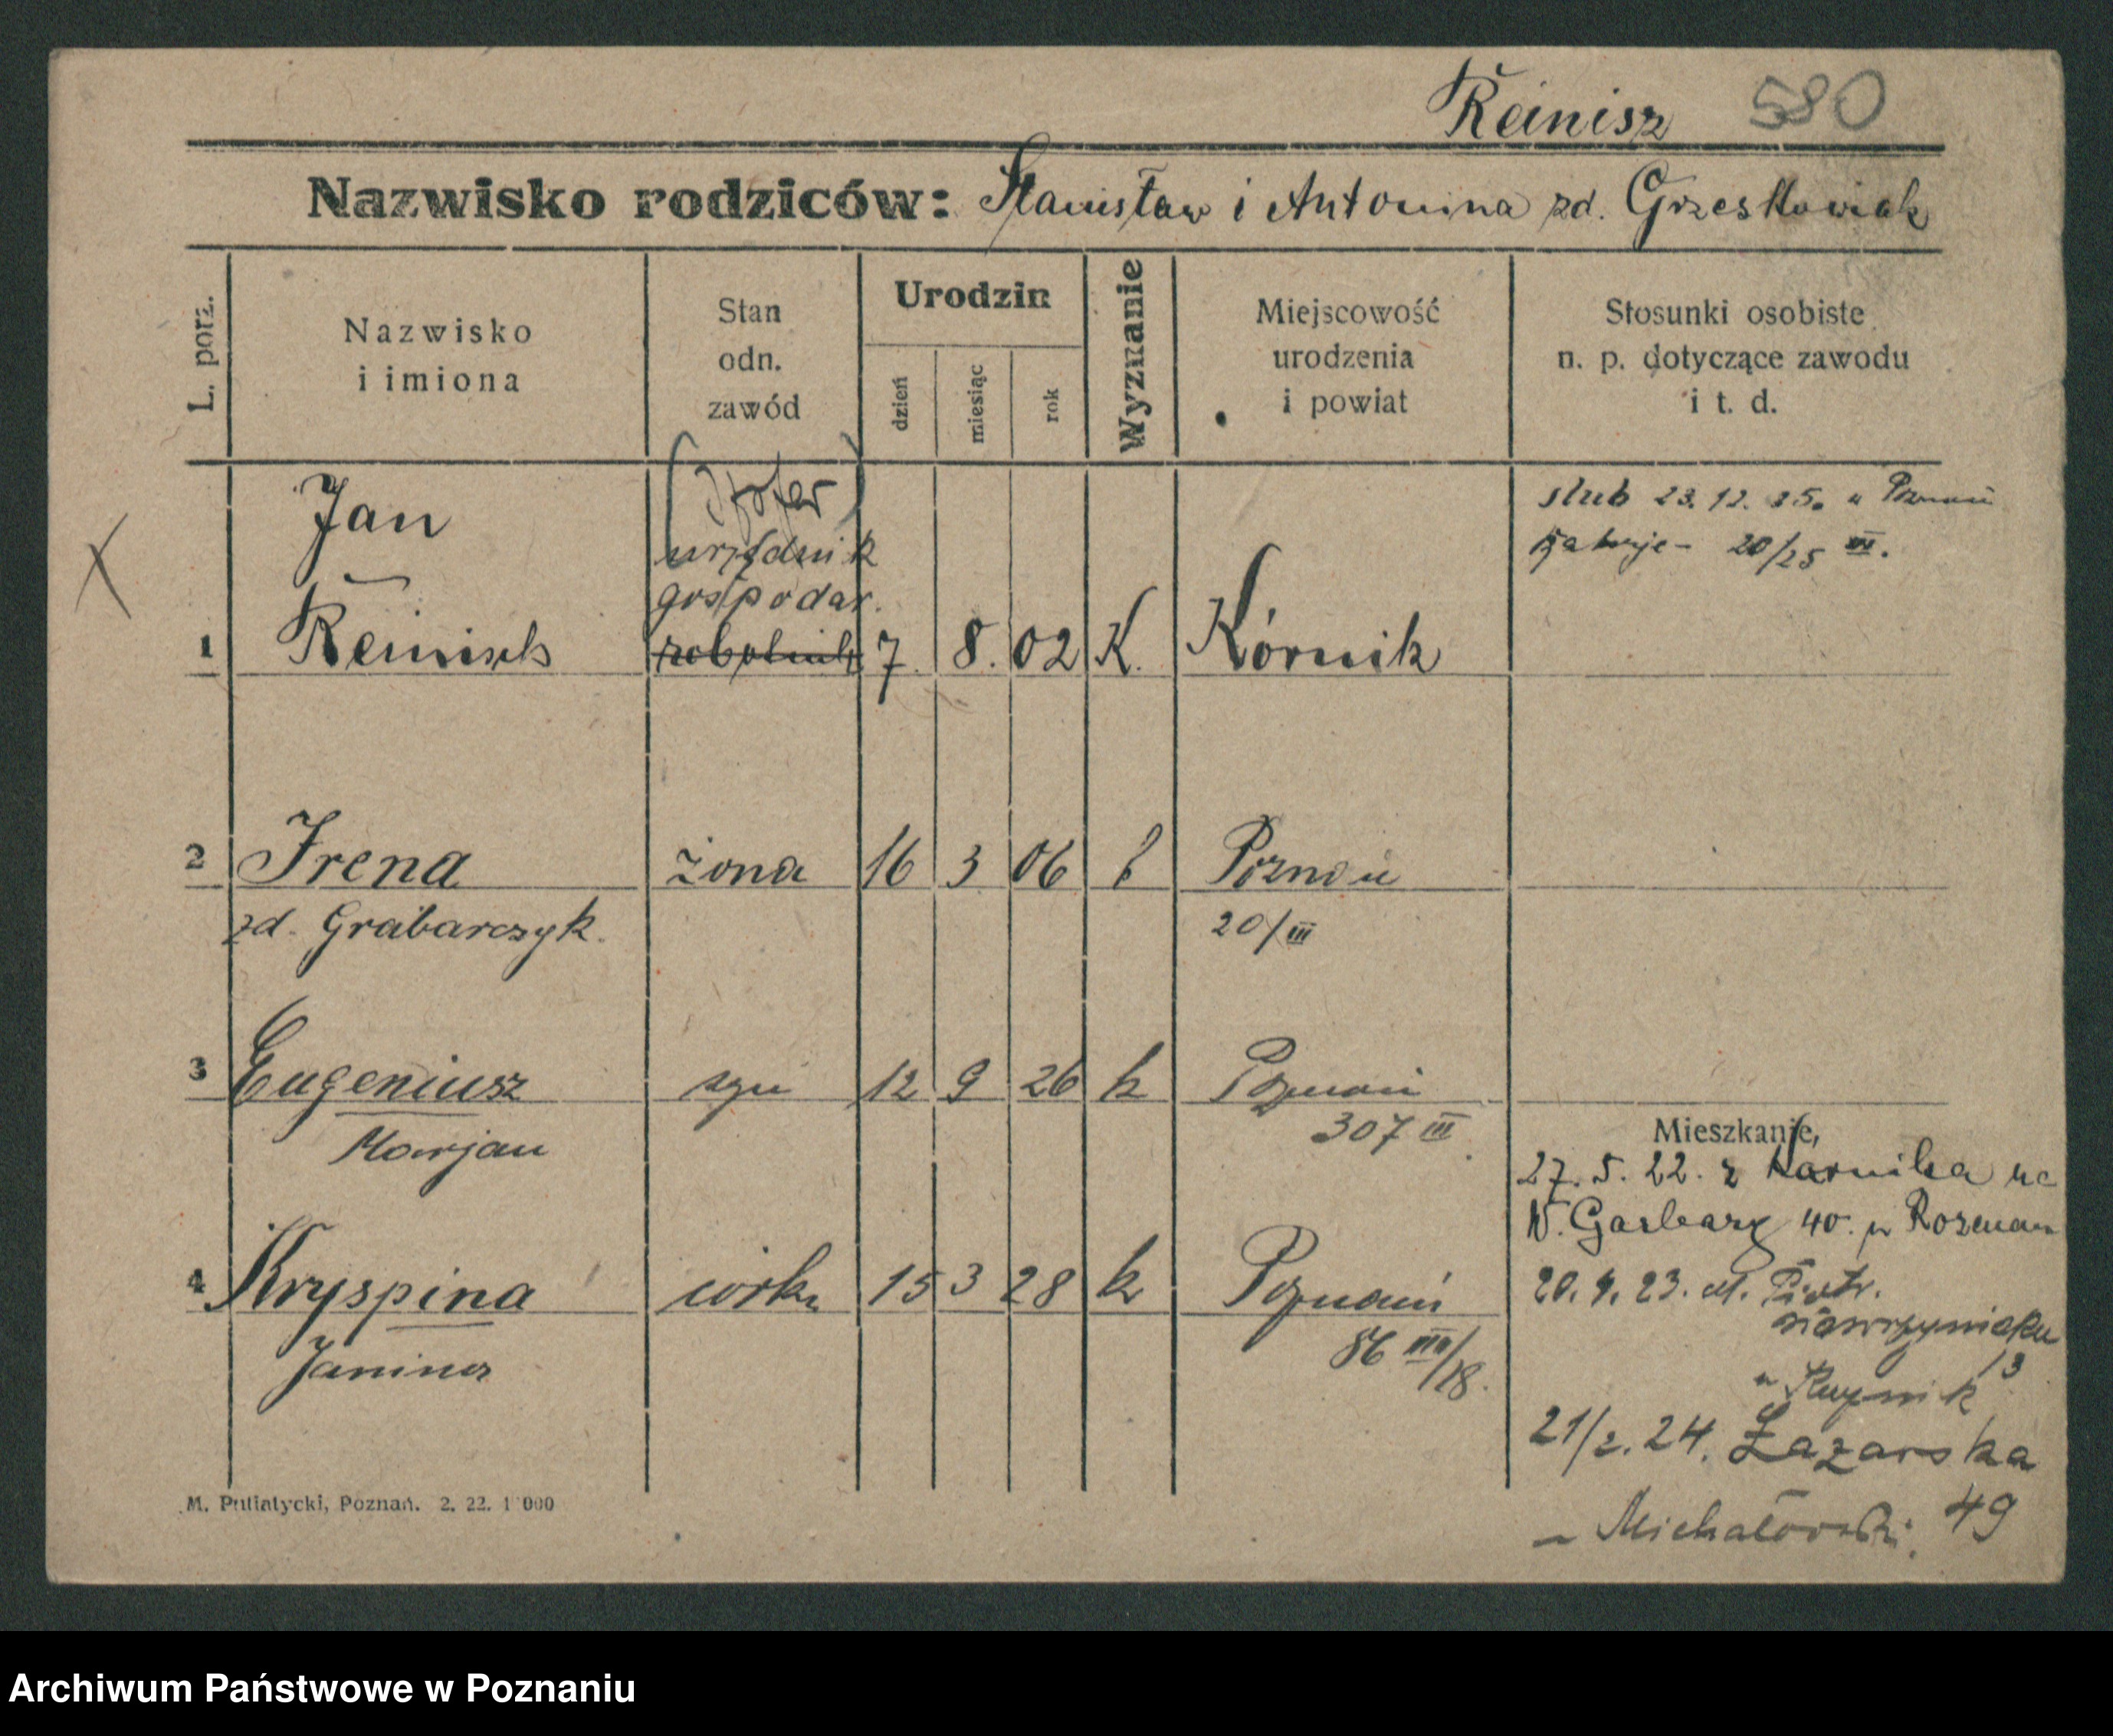 Reinisz 580
Nazwisko rodziców: Stanisław i Antonina zd. Grześkowiak
L. porz.
Nazwisko
i imiona
Stan
odn.
zawód
Urodzin
dzień
miesiąc
rok
Wyznanie
Miejscowość
urodzenia
i powiat
Stosunki osobiste
n. p. dotyczące zawodu
i t. d.
Jan
(szofer)
urzędnik
gospodar.
ślub 23. 12. 25. w Poznań
20/25 III.
1 Reinisch robotnik 7. 8. 02 K. Kórnik
2 Irena żona 16 3 06 k Poznań
zd. Grabarczyk. 20/III
3 Eugeniusz syn 12 9 26 k Poznań
Marjan 307 III
Mieszkanie,
27. 5. 22. z Kórnika na
W. Garbary 40. p Rozman
4 Kryspina córka 15 3 28 k Poznań
Janina 86 III/18.
20. 9. 23. ul. Piotr.
Wawrzyniaka
13
u Kuźnik
21/2. 24. Łazarska
49
- Michałowski.
M. Putiatycki, Poznań. 2. 22. 1 000
Archiwum Państwowe w Poznaniu